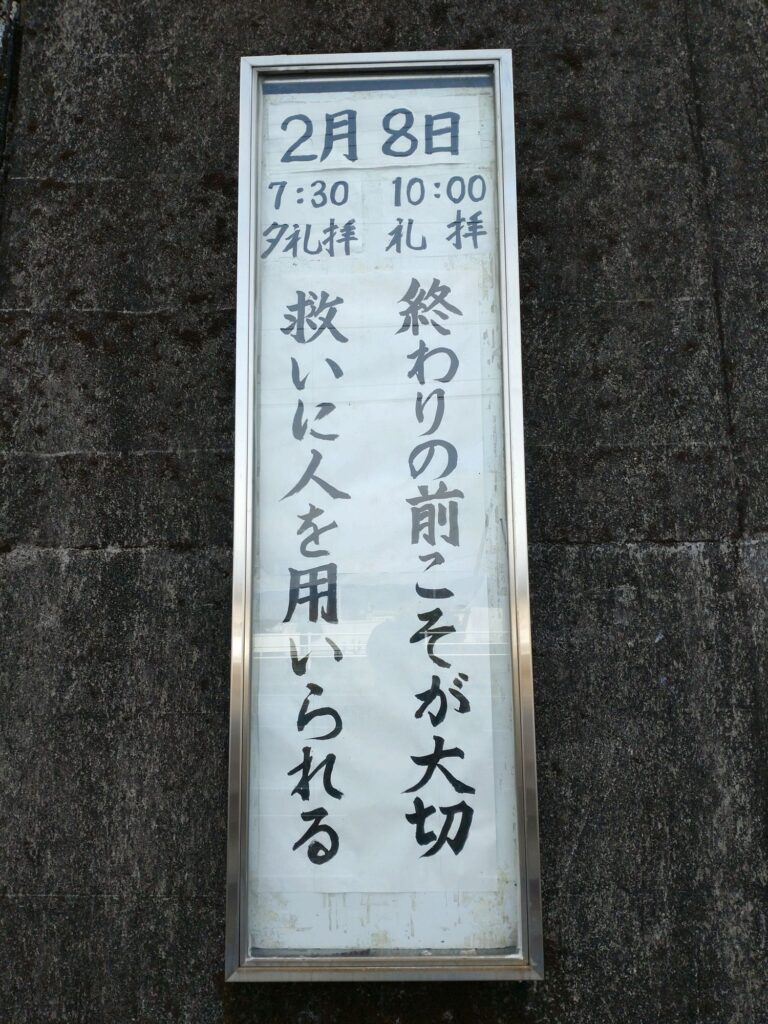 2月 8日
10:00
礼拝
7:30
夕礼拝
終わりの前こそが大切
救いに人を用いられる